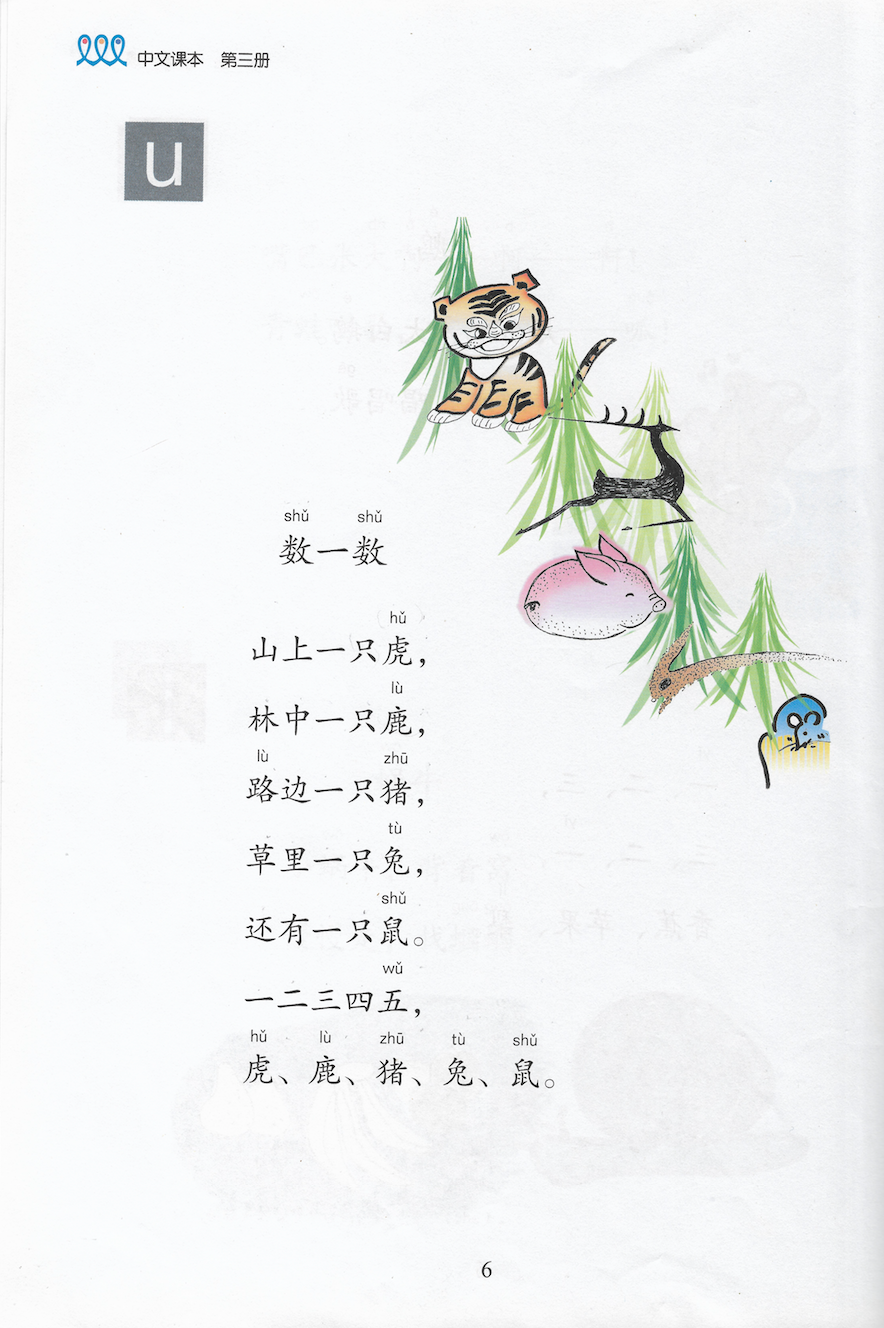 中文课本 第三册
u
shǔ shǔ
数一数
hǔ
山上一只虎，
lù
林中一只鹿，
lù zhū
路边一只猪，
tù
草里一只兔，
shǔ
还有一只鼠。
wǔ
一二三四五，
hǔ lù zhū tù shǔ
虎、鹿、猪、兔、鼠。
6